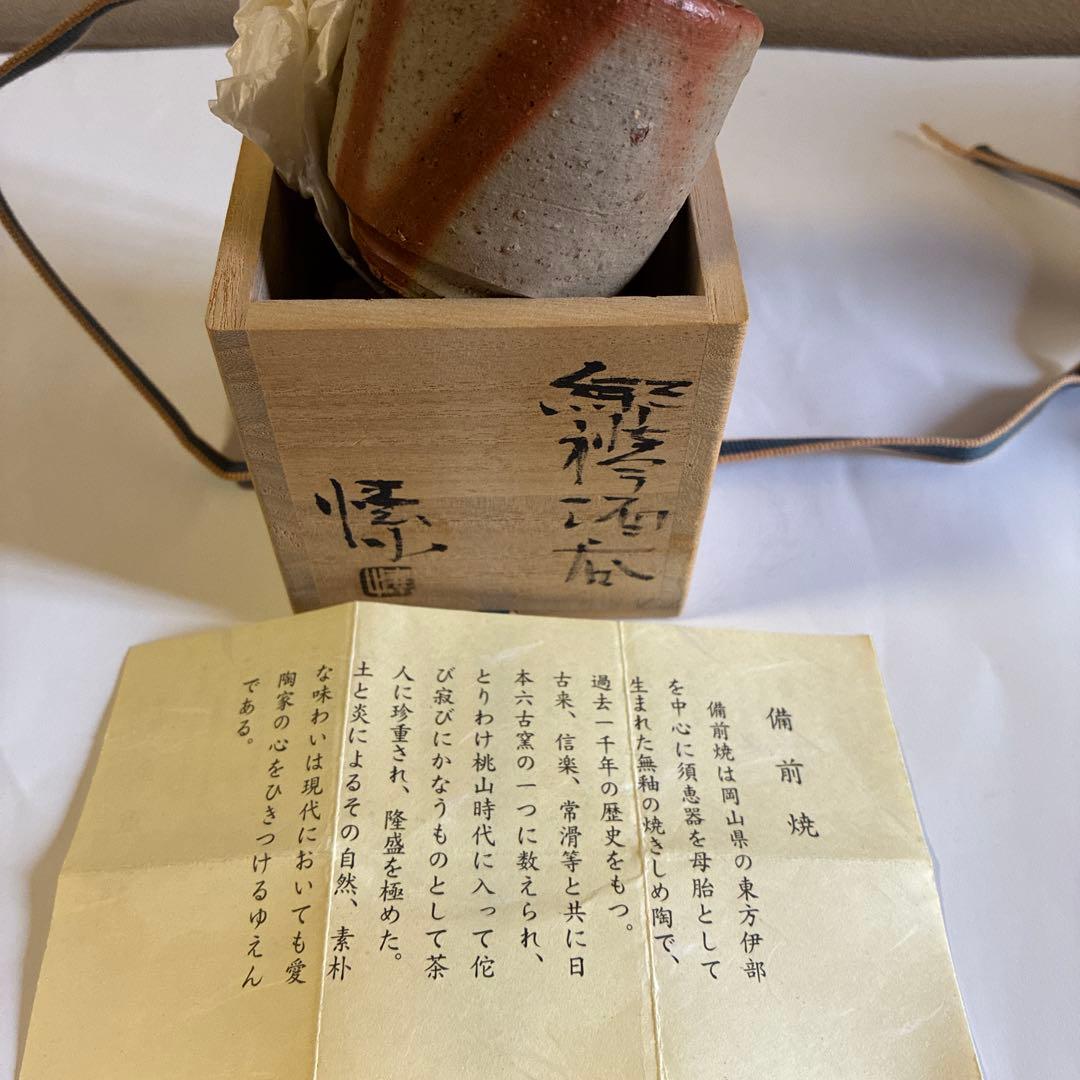 緋襷酒呑
備前焼
備前焼は岡山県の東方伊部
を中心に須恵器を母胎として
生まれた無釉の焼きしめ陶で、
過去一千年の歴史をもつ。
古来、信楽、常滑等と共に日
本六古窯の一つに数えられ、
とりわけ桃山時代に入って佗
び寂びにかなうものとして茶
人に珍重され、隆盛を極めた。
土と炎によるその自然、素朴
な味わいは現代においても愛
陶家の心をひきつけるゆえん
である。